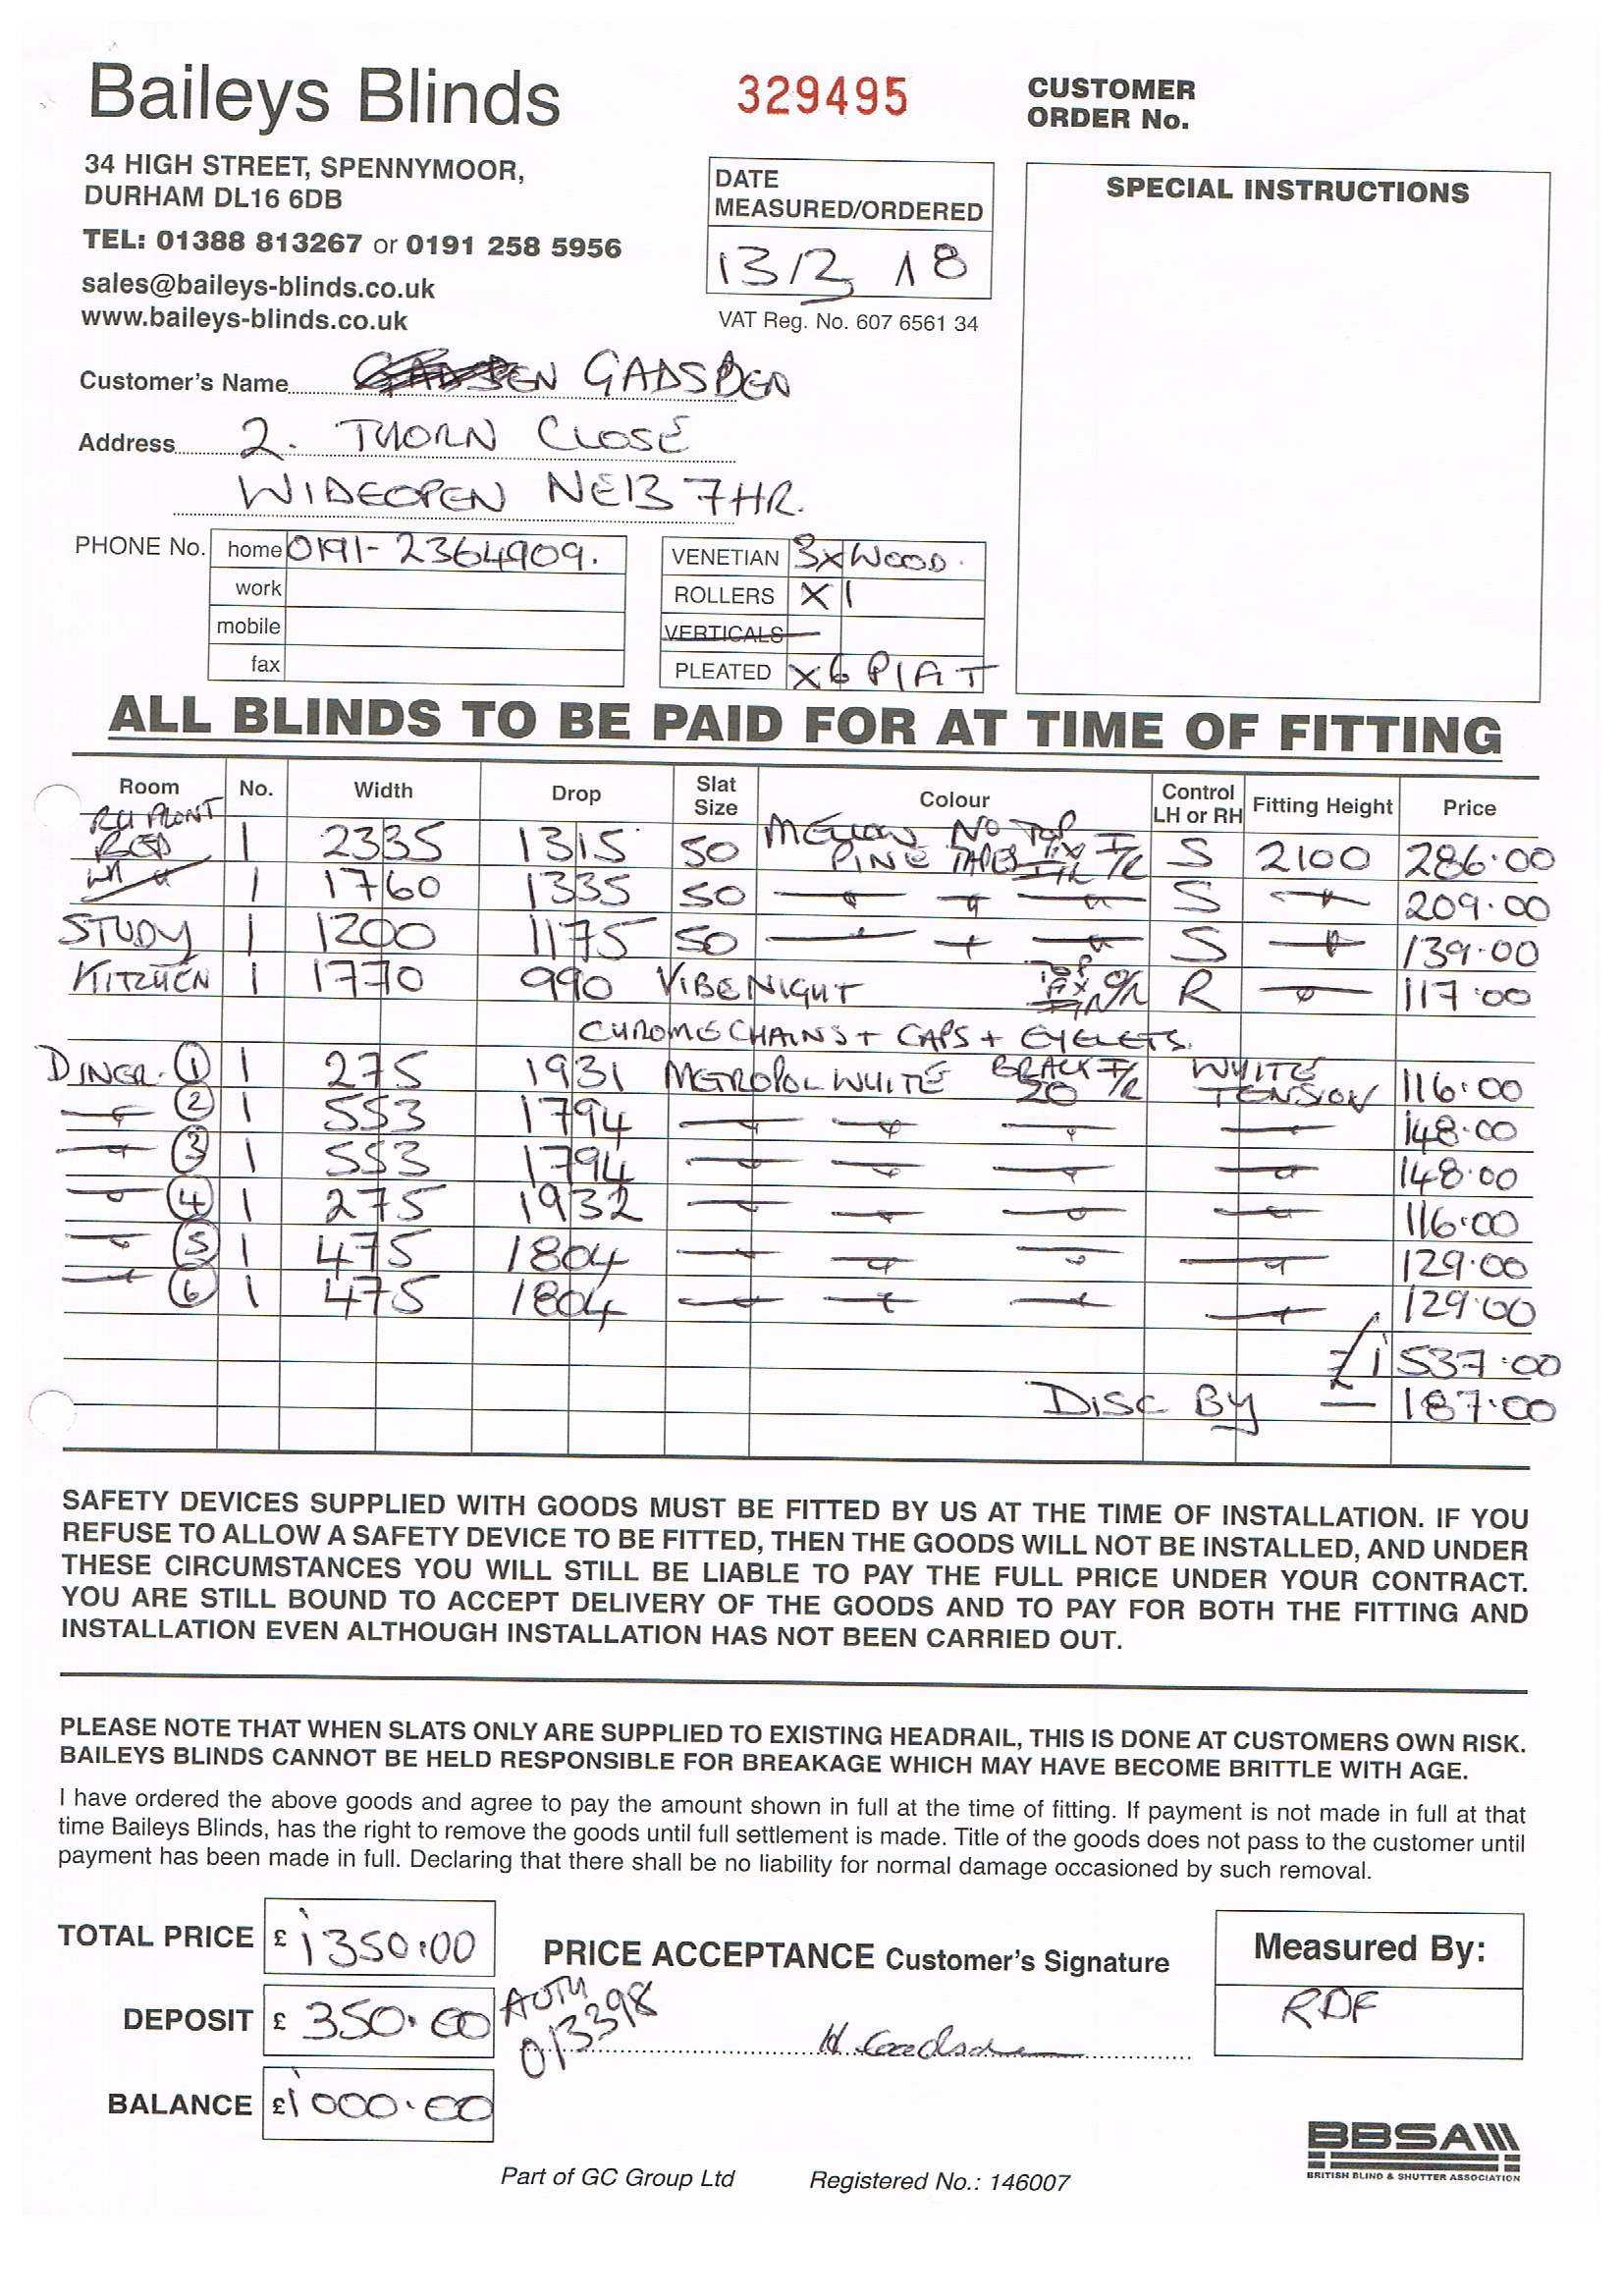 Baileys Blinds
329495
CUSTOMER
ORDER No.
34 HIGH STREET, SPENNYMOOR,
DURHAM DL16 6DB
TEL: 01388 813267 or 0191 258 5956
sales@baileys-blinds.co.uk
www.baileys-blinds.co.uk
DATE
MEASURED/ORDERED
13/3 18
VAT Reg. No. 607 6561 34
SPECIAL INSTRUCTIONS
Customer's Name GADSDEN
Address 2. THORN CLOSE
WIDEOPEN NE13 7HR.
PHONE No. home 0191-2364909.
work
mobile
fax
VENETIAN 3xWOOD.
ROLLERS X 1
VERTICALS
PLEATED X6 P I A T
ALL BLINDS TO BE PAID FOR AT TIME OF FITTING
Room No. Width Drop Slat Size Colour Control LH or RH Fitting Height Price
RH FRONT
BED 1 2335 1315 50 MELLOW PINE NO TAPES TOP FIX I/R S 2100 286.00
1 1760 1335 50 S 209.00
STUDY 1 1200 1175 50 S 139.00
KITCHEN 1 1770 990 VIBE NIGHT TOP FIX O/R R 117.00
CHROME CHAINS + CAPS + EYELETS.
DINER. 1 1 275 1931 METROPOL WHITE BRACK 20 I/R WHITE TENSION 116.00
2 1 553 1794 148.00
3 1 553 1794 148.00
4 1 275 1932 116.00
5 1 475 1804 129.00
6 1 475 1804 129.00
£1537.00
DISC BY — 187.00
SAFETY DEVICES SUPPLIED WITH GOODS MUST BE FITTED BY US AT THE TIME OF INSTALLATION. IF YOU
REFUSE TO ALLOW A SAFETY DEVICE TO BE FITTED, THEN THE GOODS WILL NOT BE INSTALLED, AND UNDER
THESE CIRCUMSTANCES YOU WILL STILL BE LIABLE TO PAY THE FULL PRICE UNDER YOUR CONTRACT.
YOU ARE STILL BOUND TO ACCEPT DELIVERY OF THE GOODS AND TO PAY FOR BOTH THE FITTING AND
INSTALLATION EVEN ALTHOUGH INSTALLATION HAS NOT BEEN CARRIED OUT.
PLEASE NOTE THAT WHEN SLATS ONLY ARE SUPPLIED TO EXISTING HEADRAIL, THIS IS DONE AT CUSTOMERS OWN RISK.
BAILEYS BLINDS CANNOT BE HELD RESPONSIBLE FOR BREAKAGE WHICH MAY HAVE BECOME BRITTLE WITH AGE.
I have ordered the above goods and agree to pay the amount shown in full at the time of fitting. If payment is not made in full at that
time Baileys Blinds, has the right to remove the goods until full settlement is made. Title of the goods does not pass to the customer until
payment has been made in full. Declaring that there shall be no liability for normal damage occasioned by such removal.
TOTAL PRICE £ 1350.00
PRICE ACCEPTANCE Customer's Signature
Measured By:
RDF
DEPOSIT £ 350.00
AUTH
013398
BALANCE £1000.00
BBSA
BRITISH BLIND & SHUTTER ASSOCIATION
Part of GC Group Ltd Registered No.: 146007